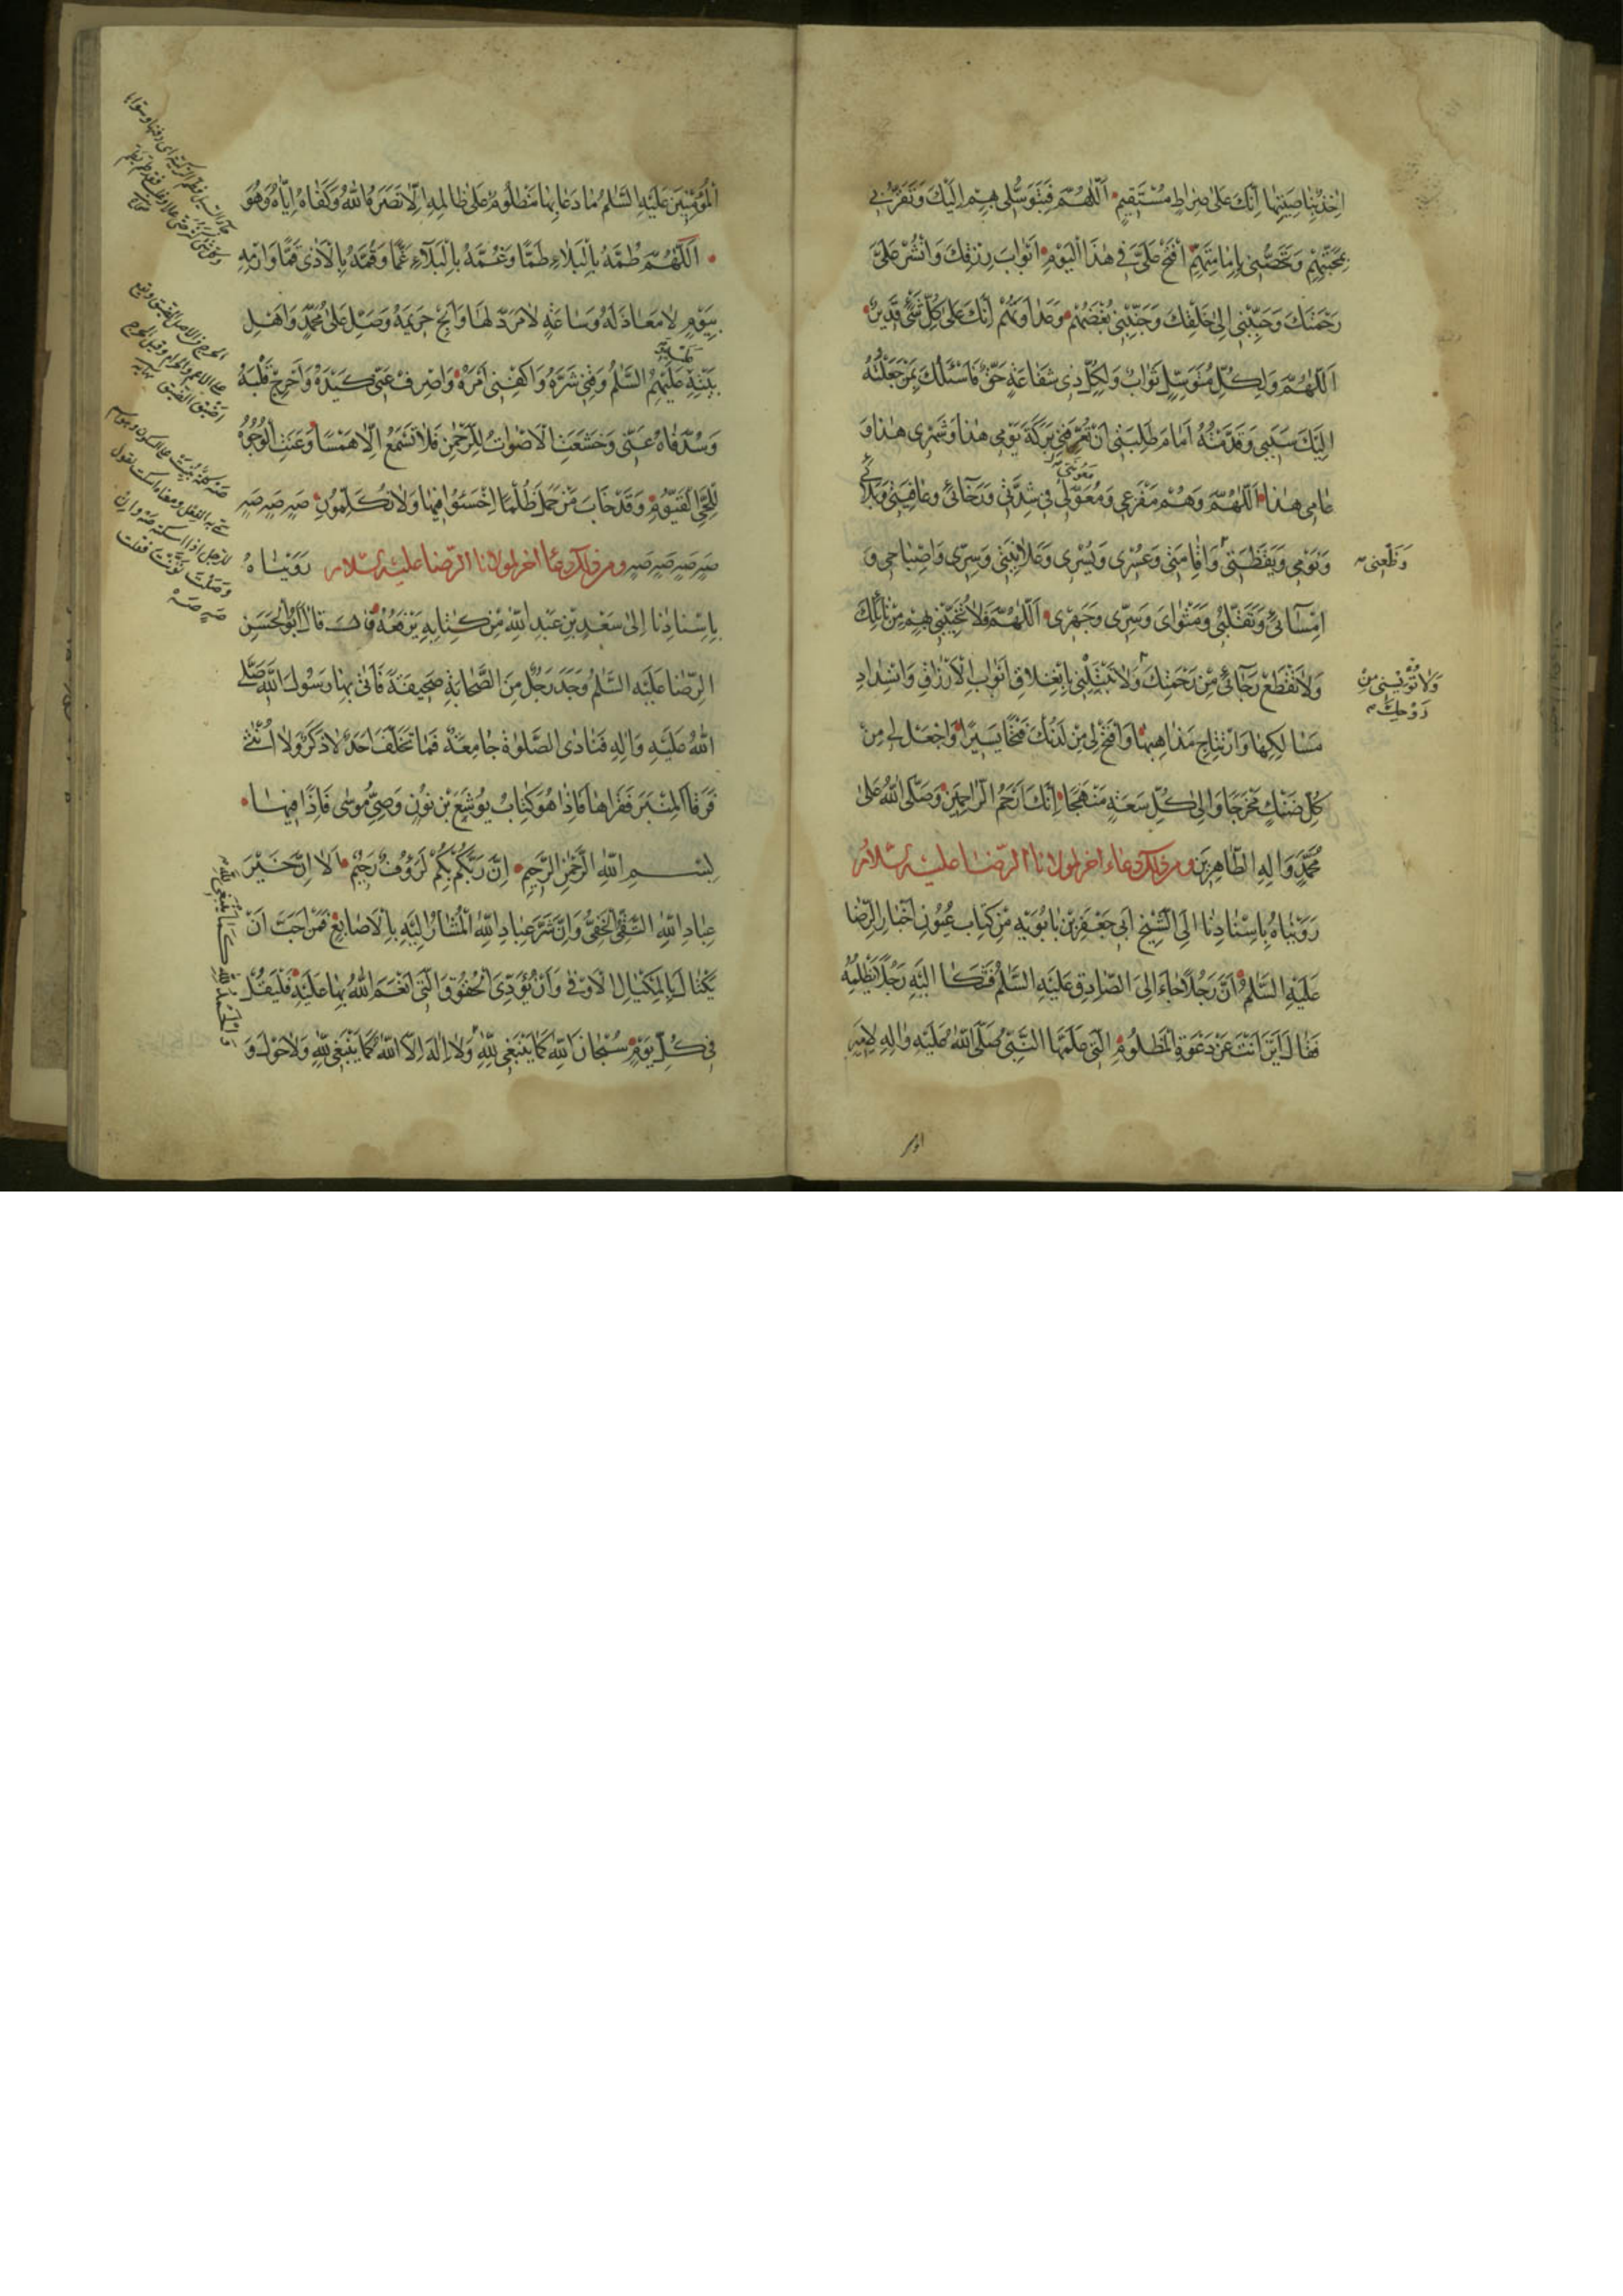 اٰخِذٌ بِنَاصِيَتِهَا اِنَّكَ عَلٰى صِرَاطٍ مُسْتَقِيمٍ اَللّٰهُمَّ فَبِتَوَسُّلِى بِهِمْ اِلَيْكَ وَتَقَرُّبِى
بِمَحَبَّتِهِمْ وَتَحَصُّنِى بِاِمَامَتِهِمْ اِفْتَحْ عَلَىَّ فِى هٰذَا الْيَوْمِ اَبْوَابَ رِزْقِكَ وَانْشُرْ عَلَىَّ
رَحْمَتَكَ وَحَبِّبْنِى اِلٰى خَلْقِكَ وَجَنِّبْنِى بُغْضَهُمْ وَعَدَاوَتَهُمْ اِنَّكَ عَلٰى كُلِّ شَىْءٍ قَدِيرٌ
اَللّٰهُمَّ وَلِكُلِّ مُتَوَسِّلٍ ثَوَابٌ وَلِكُلِّ ذِى شَفَاعَةٍ حَقٌّ فَاَسْئَلُكَ بِمَنْ جَعَلْتُهُ
اِلَيْكَ سَبَبِى وَقَدَّمْتُهُ اَمَامَ طَلِبَتِى اَنْ تُعَرِّفَنِى بَرَكَةَ يَوْمِى هٰذَا وَشَهْرِى هٰذَا وَ
عَامِى هٰذَا اَللّٰهُمَّ وَهُمْ مَفْزَعِى وَمُعَوَّلِى فِى شِدَّتِى وَرَخَائِى وَعَافِيَتِى وَبَلَائِى
مَعُونَتِى
وَنَوْمِى وَيَقْظَتِى وَاِقَامَتِى وَعُسْرِى وَيُسْرِى وَعَلَانِيَتِى وَسِرِّى وَاِصْبَاحِى وَ
وَظَعْنِى
اِمْسَائِى وَتَقَلُّبِى وَمَثْوَاىَ وَسِرِّى وَجَهْرِى اَللّٰهُمَّ فَلَا تُخَيِّبْنِى بِهِمْ مِنْ نَائِلِكَ
وَلَا تَقْطَعْ رَجَائِى مِنْ رَحْمَتِكَ وَلَا تَبْتَلِنِى بِانْغِلَاقِ اَبْوَابِ الْاَرْزَاقِ وَانْسِدَادِ
وَلَا تُؤْيِسْنِى مِنْ
رَوْحِكَ
مَسَالِكِهَا وَارْتِتَاجِ مَذَاهِبِهَا وَافْتَحْ لِى مِنْ لَدُنْكَ فَتْحًا يَسِيرًا وَاجْعَلْ لِى مِنْ
كُلِّ ضَنْكٍ مَخْرَجًا وَاِلٰى كُلِّ سَعَةٍ مَنْهَجًا اِنَّكَ اَرْحَمُ الرَّاحِمِينَ وَصَلَّى اللّٰهُ عَلٰى
مُحَمَّدٍ وَاٰلِهِ الطَّاهِرِينَ ومن ذلك دعاء اخر لمولانا الرضا عليه السلام
رَوَيْنَاهُ بِاِسْنَادِنَا اِلَى الشَّيْخِ اَبِى جَعْفَرِ بْنِ بَابُوَيْهِ مِنْ كِتَابِ عُيُونِ اَخْبَارِ الرِّضَا
عَلَيْهِ السَّلَمُ اَنَّ رَجُلًا جَاءَ اِلَى الصَّادِقِ عَلَيْهِ السَّلَمُ فَشَكَا اِلَيْهِ رَجُلًا يَظْلِمُهُ
فَقَالَ اَيْنَ اَنْتَ عَنْ دَعْوَةِ الْمَظْلُومِ الَّتِى عَلَّمَهَا النَّبِىُّ صَلَّى اللّٰهُ عَلَيْهِ وَاٰلِهِ لِاَمِيرِ
الْمُؤْمِنِينَ عَلَيْهِ السَّلَمُ مَا دَعَا بِهَا مَظْلُومٌ عَلٰى ظَالِمِهِ اِلَّا نَصَرَهُ اللّٰهُ وَكَفَاهُ اِيَّاهُ وَهُوَ
اَللّٰهُمَّ طُمَّهُ بِالْبَلَاءِ طَمًّا وَغُمَّهُ بِالْبَلَاءِ غَمًّا وَقُمَّهُ بِالْاَذٰى قَمًّا وَارْمِهِ
بِيَوْمٍ لَا مَعَاذَ لَهُ وَسَاعَةٍ لَا مَرَدَّ لَهَا وَاَبِحْ حَرِيمَهُ وَصَلِّ عَلٰى مُحَمَّدٍ وَاَهْلِ
بَيْتِهِ عَلَيْهِمُ السَّلَمُ وَقِنِى شَرَّهُ وَاكْفِنِى اَمْرَهُ وَاصْرِفْ عَنِّى كَيْدَهُ وَاَحْرِجْ قَلْبَهُ
وَسُدَّ فَاهُ عَنِّى وَخَشَعَتِ الْاَصْوَاتُ لِلرَّحْمٰنِ فَلَا تَسْمَعُ اِلَّا هَمْسًا وَعَنَتِ الْوُجُوهُ
لِلْحَىِّ الْقَيُّومِ وَقَدْ خَابَ مَنْ حَمَلَ ظُلْمًا اِخْسَئُوا فِيهَا وَلَا تُكَلِّمُونِ صَهٍ صَهٍ صَهٍ
صَهٍ صَهٍ صَهٍ صَهٍ ومن ذلك دعاء اخر لمولانا الرضا عليه السلام رَوَيْنَاهُ
بِاِسْنَادِنَا اِلٰى سَعْدِ بْنِ عَبْدِ اللّٰهِ مِنْ كِتَابِهِ يَرْفَعُهُ قَالَ قَالَ اَبُو الْحَسَنِ
الرِّضَا عَلَيْهِ السَّلَمُ وَجَدَ رَجُلٌ مِنَ الصَّحَابَةِ صَحِيفَةً فَاَتٰى بِهَا رَسُولَ اللّٰهِ صَلَّى
اللّٰهُ عَلَيْهِ وَاٰلِهِ فَنَادٰى الصَّلٰوةَ جَامِعَةً فَمَا تَخَلَّفَ اَحَدٌ لَا ذَكَرٌ وَلَا اُنْثٰى
فَرَقَا الْمِنْبَرَ فَقَرَاهَا فَاِذَا هُوَ كِتَابُ يُوشَعَ بْنِ نُونٍ وَصِىِّ مُوسٰى فَاِذَا فِيهَا
بِسْمِ اللّٰهِ الرَّحْمٰنِ الرَّحِيمِ اِنَّ رَبَّكُمْ بِكُمْ لَرَؤُوفٌ رَحِيمٌ اَلَا اِنَّ خَيْرَ
عِبَادِ اللّٰهِ التَّقِىُّ الْخَفِىُّ وَاِنَّ شَرَّ عِبَادِ اللّٰهِ الْمُشَارُ اِلَيْهِ بِالْاَصَابِعِ فَمَنْ اَحَبَّ اَنْ
يَكْتَالَ بِالْمِكْيَالِ الْاَوْفٰى وَاَنْ يُؤَدِّىَ الْحُقُوقَ الَّتِى اَنْعَمَ اللّٰهُ بِهَا عَلَيْهِ فَلْيَقُلْ
فِى كُلِّ يَوْمٍ سُبْحَانَ اللّٰهِ كَمَا يَنْبَغِى لِلّٰهِ وَلَا اِلٰهَ اِلَّا اللّٰهُ كَمَا يَنْبَغِى لِلّٰهِ وَلَا حَوْلَ وَ
وَالْحَمْدُ لِلّٰهِ كَمَا يَنْبَغِى لِلّٰهِ